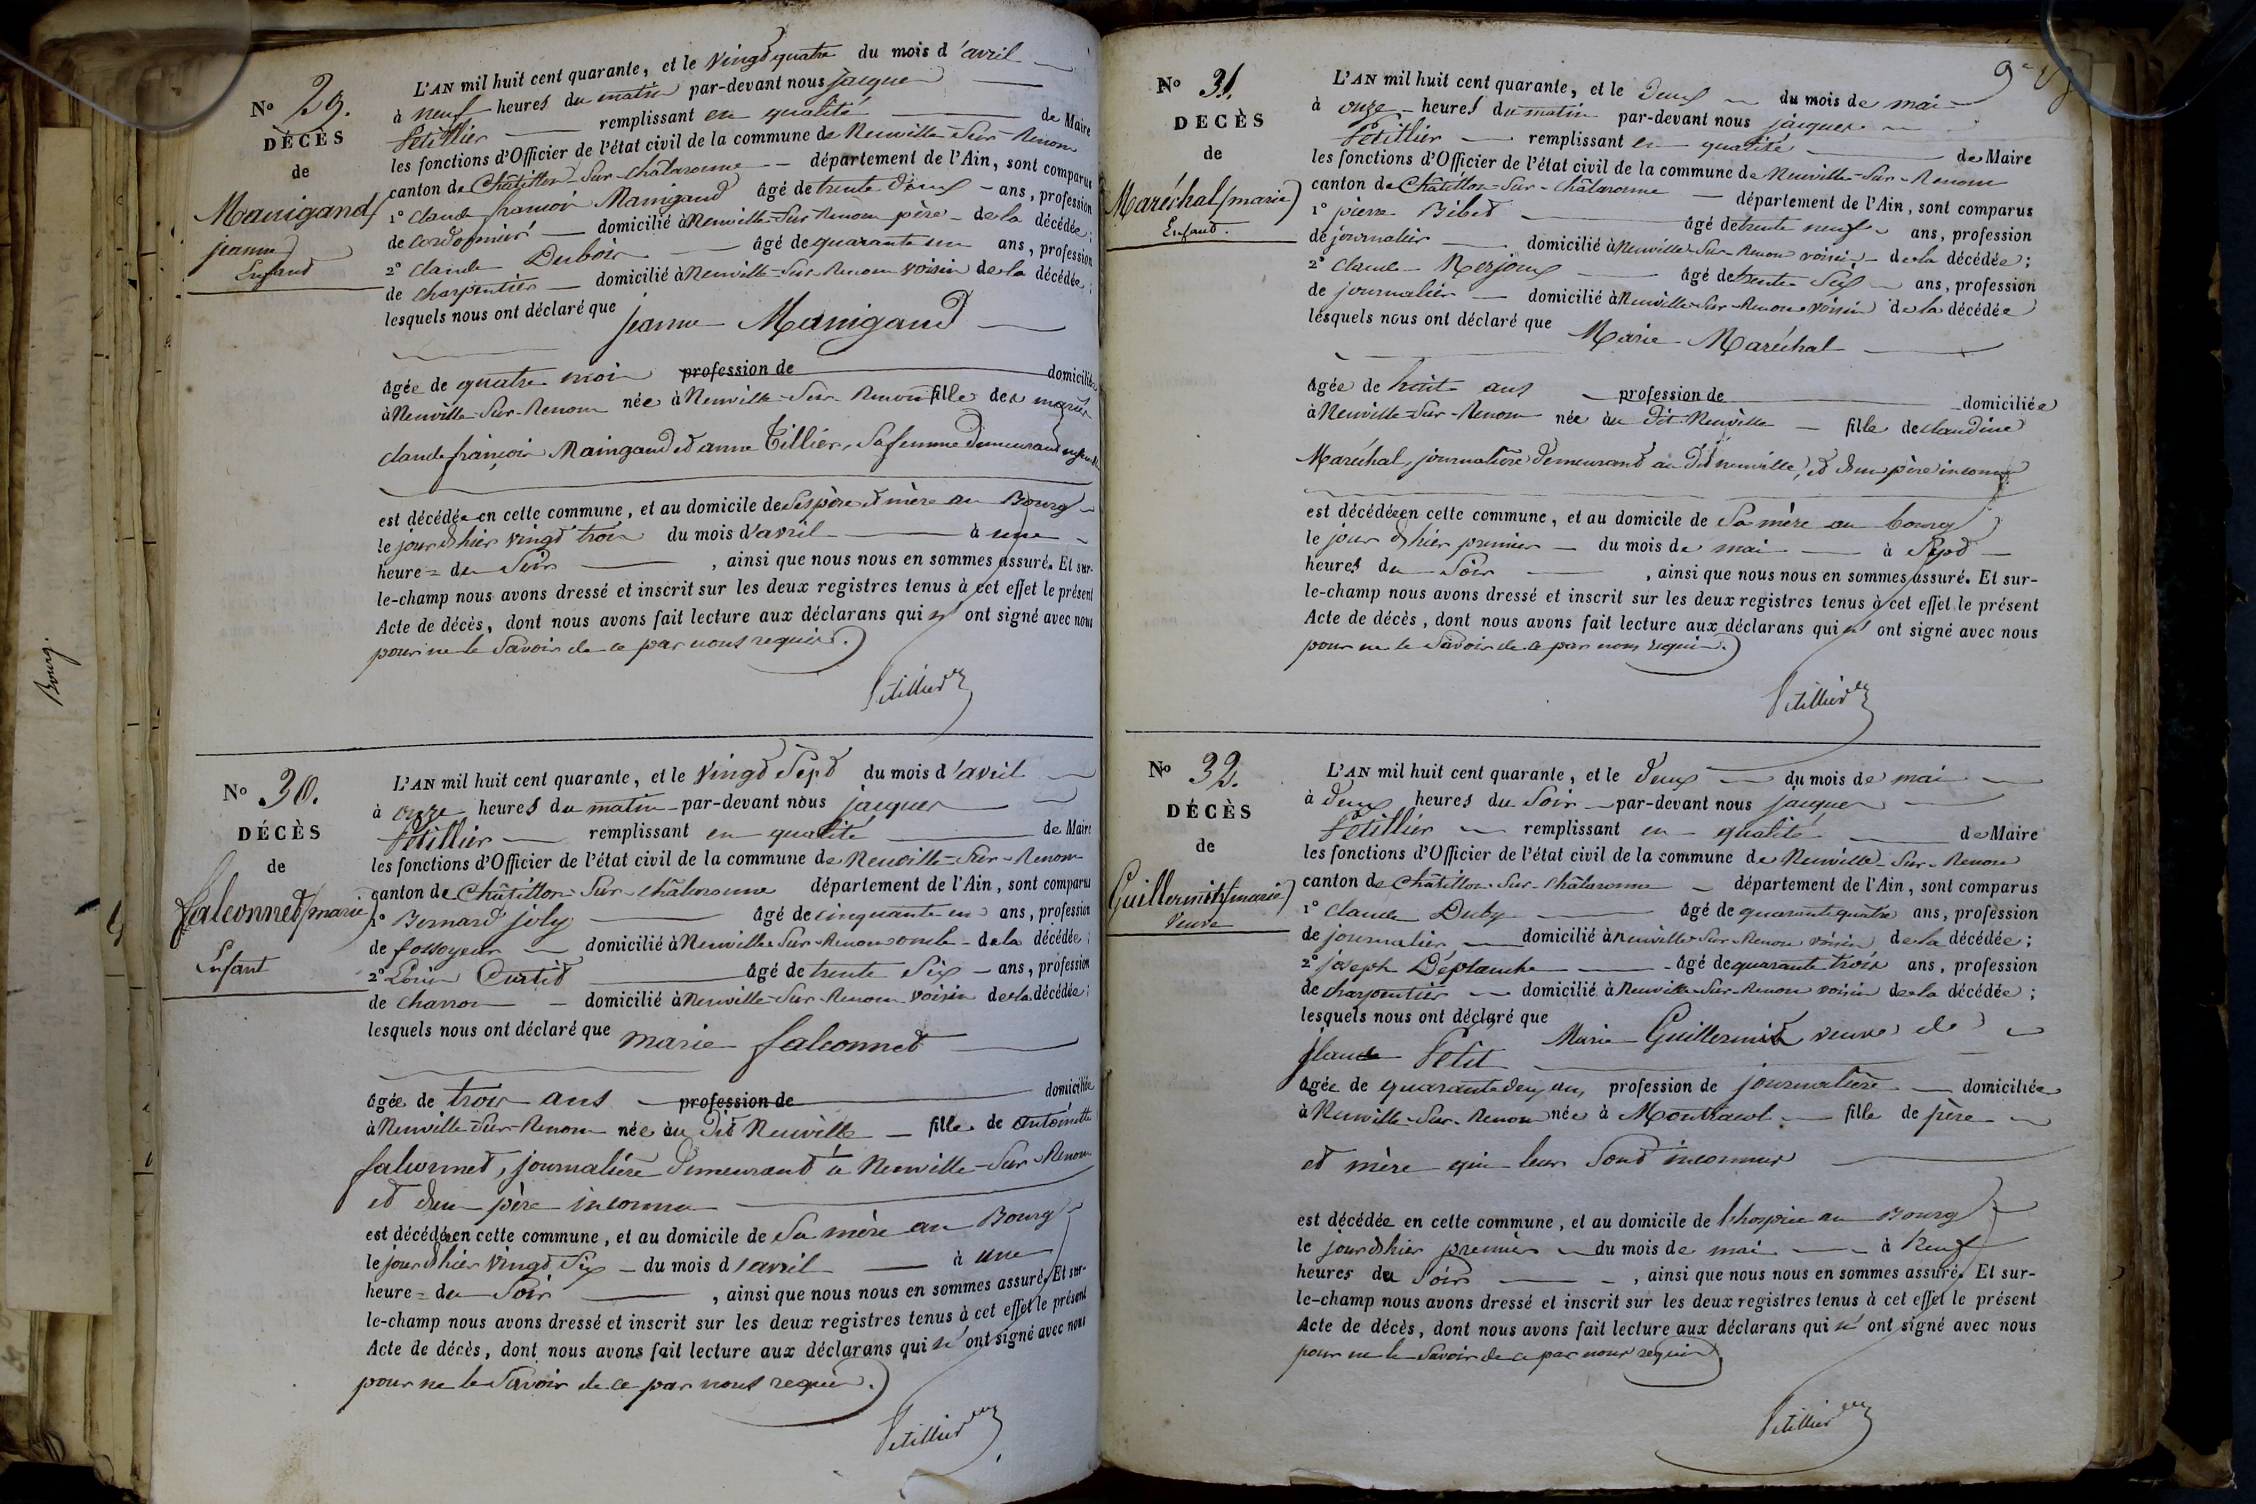 Bourg.
N° 29.
DÉCÈS
de
Manigand
jeanne
Enfand
L'AN mil huit cent quarante, et le vingt quatre du mois d'avril
à neuf heures du matin par-devant nous jacques
Petillier remplissant en qualité de Maire
les fonctions d'Officier de l'état civil de la commune de Neuville-Sur-Renom
canton de Châtillon-Sur-châlaronne département de l'Ain, sont comparus
1° claude françois Manigand âgé de trente deux ans, profession
de cordonnier domicilié à Neuville-Sur-Renom père de la décédée;
2° claude Dubois âgé de quarante un ans, profession
de charpentier domicilié à Neuville-Sur-Renom voisin de la décédée;
lesquels nous ont déclaré que jeanne Manigand
âgée de quatre mois profession de domiciliée
à Neuville-Sur-Renom née à Neuville-Sur-Renom fille des mariés
claude françois Manigand et anne Tillier, Sa femme demeurant
est décédée en cette commune, et au domicile de Ses père et mère au Bourg
le jour d'hier vingt trois du mois d'avril à une
heure du Soir, ainsi que nous nous en sommes assuré. Et sur-
le-champ nous avons dressé et inscrit sur les deux registres tenus à cet effet le présent
Acte de décès, dont nous avons fait lecture aux déclarans qui n' ont signé avec nous
pour ne le Savoir de ce par nous requis.
Petillier
N° 30.
DÉCÈS
de
falconnet (marie)
Enfant
L'AN mil huit cent quarante, et le vingt Sept du mois d'avril
à onze heures du matin par-devant nous jacques
Petillier remplissant en qualité de Maire
les fonctions d'Officier de l'état civil de la commune de Neuville-Sur-Renom
canton de Châtillon-Sur-châlaronne département de l'Ain, sont comparus
1° Bernard joly âgé de cinquante un ans, profession
de fossoyeur domicilié à Neuville-Sur-Renom oncle de la décédée;
2° Louis Curtit âgé de trente Six ans, profession
de charron domicilié à Neuville-Sur-Renom voisin de la décédée;
lesquels nous ont déclaré que marie falconnet
âgée de trois ans profession de domiciliée
à Neuville-Sur-Renom née au dit Neuville fille de antoinette
falconnet, journalière demeurant à Neuville-Sur-Renom
et d'un père inconnu
est décédée en cette commune, et au domicile de Sa mère au Bourg
le jour d'hier vingt Six du mois d'avril à une
heure du Soir, ainsi que nous nous en sommes assuré. Et sur-
le-champ nous avons dressé et inscrit sur les deux registres tenus à cet effet le présent
Acte de décès, dont nous avons fait lecture aux déclarans qui n' ont signé avec nous
pour ne le Savoir de ce par nous requis.
Petillier
N° 31.
DECÈS
de
Maréchal (marie)
Enfant.
L'AN mil huit cent quarante, et le deux du mois de mai
à onze heures du matin par-devant nous jacques
Petillier remplissant en qualité de Maire
les fonctions d'Officier de l'état civil de la commune de Neuville-Sur-Renom
canton de Châtillon-Sur-châlaronne département de l'Ain, sont comparus
1° pierre Bibet âgé de trente neuf ans, profession
de journalier domicilié à Neuville-Sur-Renom voisin de la décédée;
2° claude Merjoux âgé de trente Six ans, profession
de journalier domicilié à Neuville-Sur-Renom voisin de la décédée
lesquels nous ont déclaré que Marie Maréchal
âgée de huit ans profession de domiciliée
à Neuville-Sur-Renom née au dit Neuville fille de claudine
Maréchal, journalière demeurant au dit neuville, et d'un père inconnu
est décédée en cette commune, et au domicile de Sa mère au bourg
le jour d'hier premier du mois de mai à Sept
heures du Soir, ainsi que nous nous en sommes assuré. Et sur-
le-champ nous avons dressé et inscrit sur les deux registres tenus à cet effet le présent
Acte de décès, dont nous avons fait lecture aux déclarans qui n' ont signé avec nous
pour ne le Savoir de ce par nous requis.
Petillier
N° 32.
DÉCÈS
de
Guillermit (marie)
Veuve
L'AN mil huit cent quarante, et le deux du mois de mai
à deux heures du Soir par-devant nous jacques
Petillier remplissant en qualité de Maire
les fonctions d'Officier de l'état civil de la commune de Neuville-Sur-Renom
canton de Châtillon-Sur-châlaronne département de l'Ain, sont comparus
1° claude Duby âgé de quarante quatre ans, profession
de journalier domicilié à neuville-Sur-Renom voisin de la décédée;
2° joseph Déplanche âgé de quarante trois ans, profession
de charpentier domicilié à Neuville-Sur-Renom voisin de la décédée;
lesquels nous ont déclaré que Marie Guillermit veuve de
claude Petit
âgée de quarante deux ans, profession de journalière domiciliée
à Neuville-Sur-Renom née à Montracol fille de père
et mère qui leur Sont inconnus
est décédée en cette commune, et au domicile de l'hospice au Bourg
le jour d'hier premier du mois de mai à Neuf
heures du Soir, ainsi que nous nous en sommes assuré. Et sur-
le-champ nous avons dressé et inscrit sur les deux registres tenus à cet effet le présent
Acte de décès, dont nous avons fait lecture aux déclarans qui n' ont signé avec nous
pour ne le Savoir de ce par nous requis.
Petillier